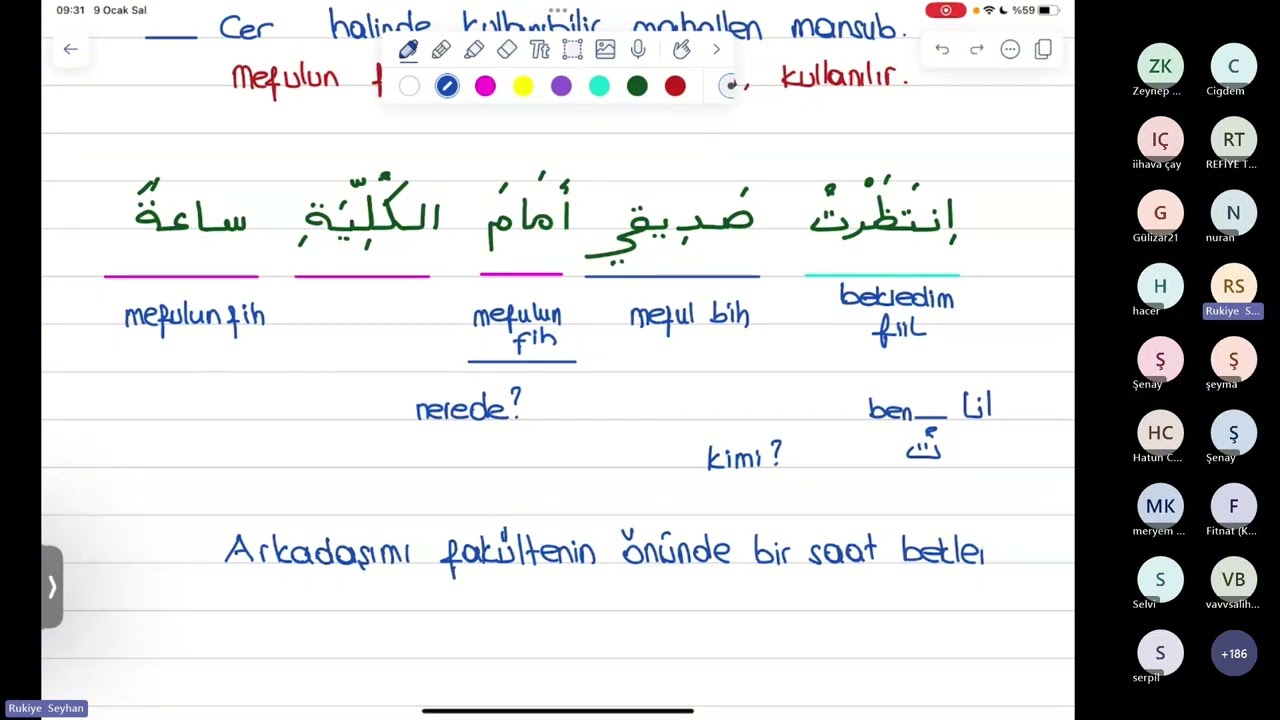 09:31 9 Ocak Sal
%59
Cer halinde kullanılabilir mahallen mansub.
Mefulun
kullanılır.
اِنْتَظَرْتُ صَدِيقي أَمَامَ الكُلِّيَّةِ ساعةً
bekledim
fiil
meful bih
mefulun
fih
mefulun fih
nerede?
ben انا
تُ
kimi?
Arkadaşımı fakültenin önünde bir saat bekle
ZK
Zeynep ...
C
Cigdem
IÇ
iihava çay
RT
REFİYE T...
G
Gülizar21
N
nuran
H
hacer
RS
Rukiye S...
Ş
Şenay
Ş
şeyma
HC
Hatun C...
Ş
Şenay
MK
meryem ...
F
Fitnat (K...
S
Selvi
VB
vavvsalih...
S
serpil
+186
Rukiye Seyhan